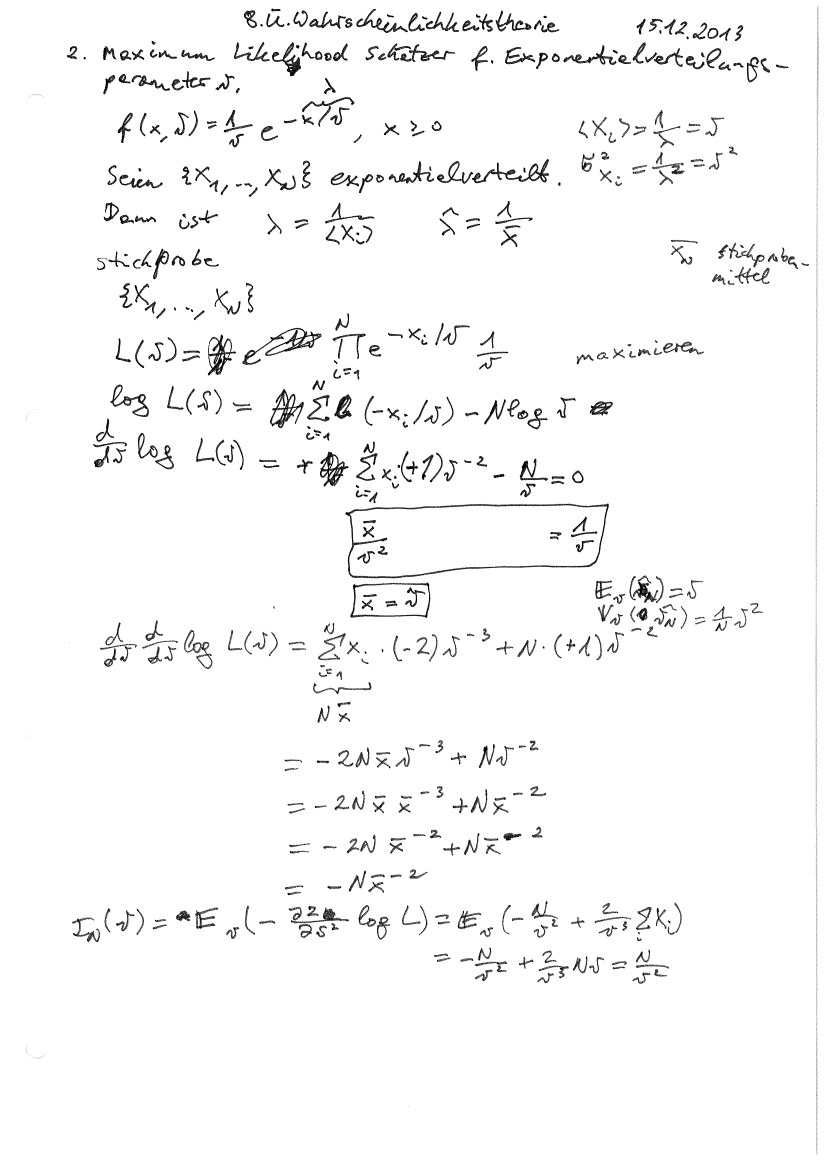 8.Ü. Wahrscheinlichkeitstheorie 15.12.2013
2. Maximum Likelihood Schätzer f. Exponentialverteilungs-
parameter ϑ.
λ
f(x,ϑ) = 1/ϑ e^{-x/ϑ}, x ≥ 0 ⟨X_i⟩ = 1/λ = ϑ
Seien {X_1, .., X_N} exponentialverteilt. σ²_{X_i} = 1/λ² = ϑ²
Dann ist λ = 1/⟨X_i⟩ λ̂ = 1/X̄
stichprobe X̄_N stichproben-
mittel
{X_1, ..., X_N}
L(ϑ) = ∏_{i=1}^{N} e^{-x_i/ϑ} 1/ϑ maximieren
log L(ϑ) = Σ_{i=1}^{N} (-x_i/ϑ) - N log ϑ
d/dϑ log L(ϑ) = + Σ_{i=1}^{N} x_i (+1) ϑ^{-2} - N/ϑ = 0
x̄/ϑ² = 1/ϑ
x̄ = ϑ̂ E_ϑ(ϑ̂_N) = ϑ
V_ϑ(ϑ̂_N) = 1/N ϑ²
d/dϑ d/dϑ log L(ϑ) = Σ_{i=1}^{N} x_i · (-2) ϑ^{-3} + N · (+1) ϑ^{-2}
N x̄
= - 2N x̄ ϑ^{-3} + Nϑ^{-2}
= - 2N x̄ x̄^{-3} + N x̄^{-2}
= - 2N x̄^{-2} + N x̄^{-2}
= - N x̄^{-2}
I_N(ϑ) = E_ϑ(- ∂²/∂ϑ² log L) = E_ϑ(- N/ϑ² + 2/ϑ³ Σ_i X_i)
= - N/ϑ² + 2/ϑ³ Nϑ = N/ϑ²